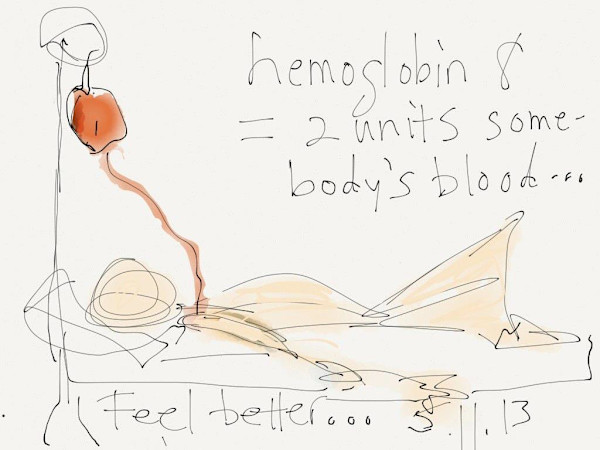 hemoglobin 8
= 2 units some-
body's blood...
Feel better... 5.11.13